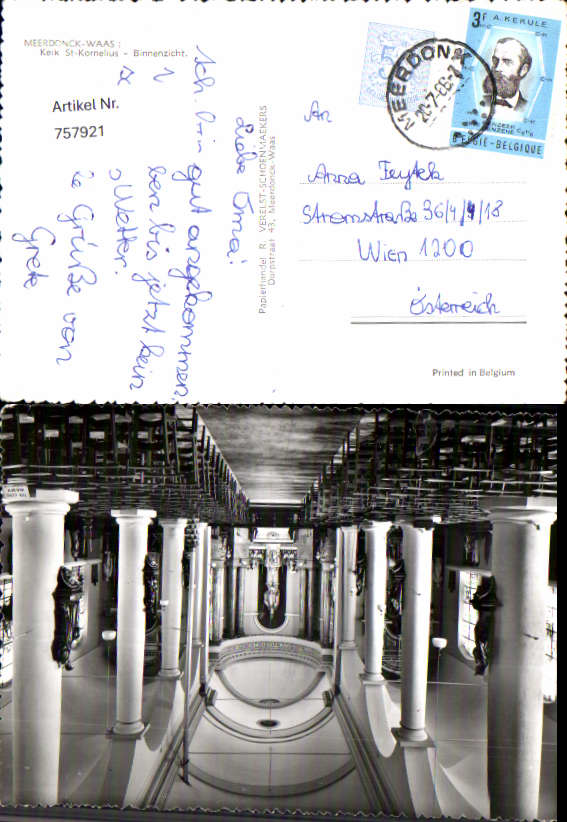 MEERDONCK-WAAS :
Kerk St-Kornelius - Binnenzicht.
Artikel Nr.
757921
Liebe Oma!
Ich bin gut angekommen.
ben bis jetzt kein
Wetter.
Grüße von
Grete
Papierhandel R. VERELST-SCHOENMAEKERS
Dorpstraat 43, Meerdonck-Waas
3F A. KEKULE
BELGIE-BELGIQUE
MEERDONK
20-7-66
An
Anna Feytek
Stromstraße 36/4/4/18
Wien 1200
Österreich
Printed in Belgium